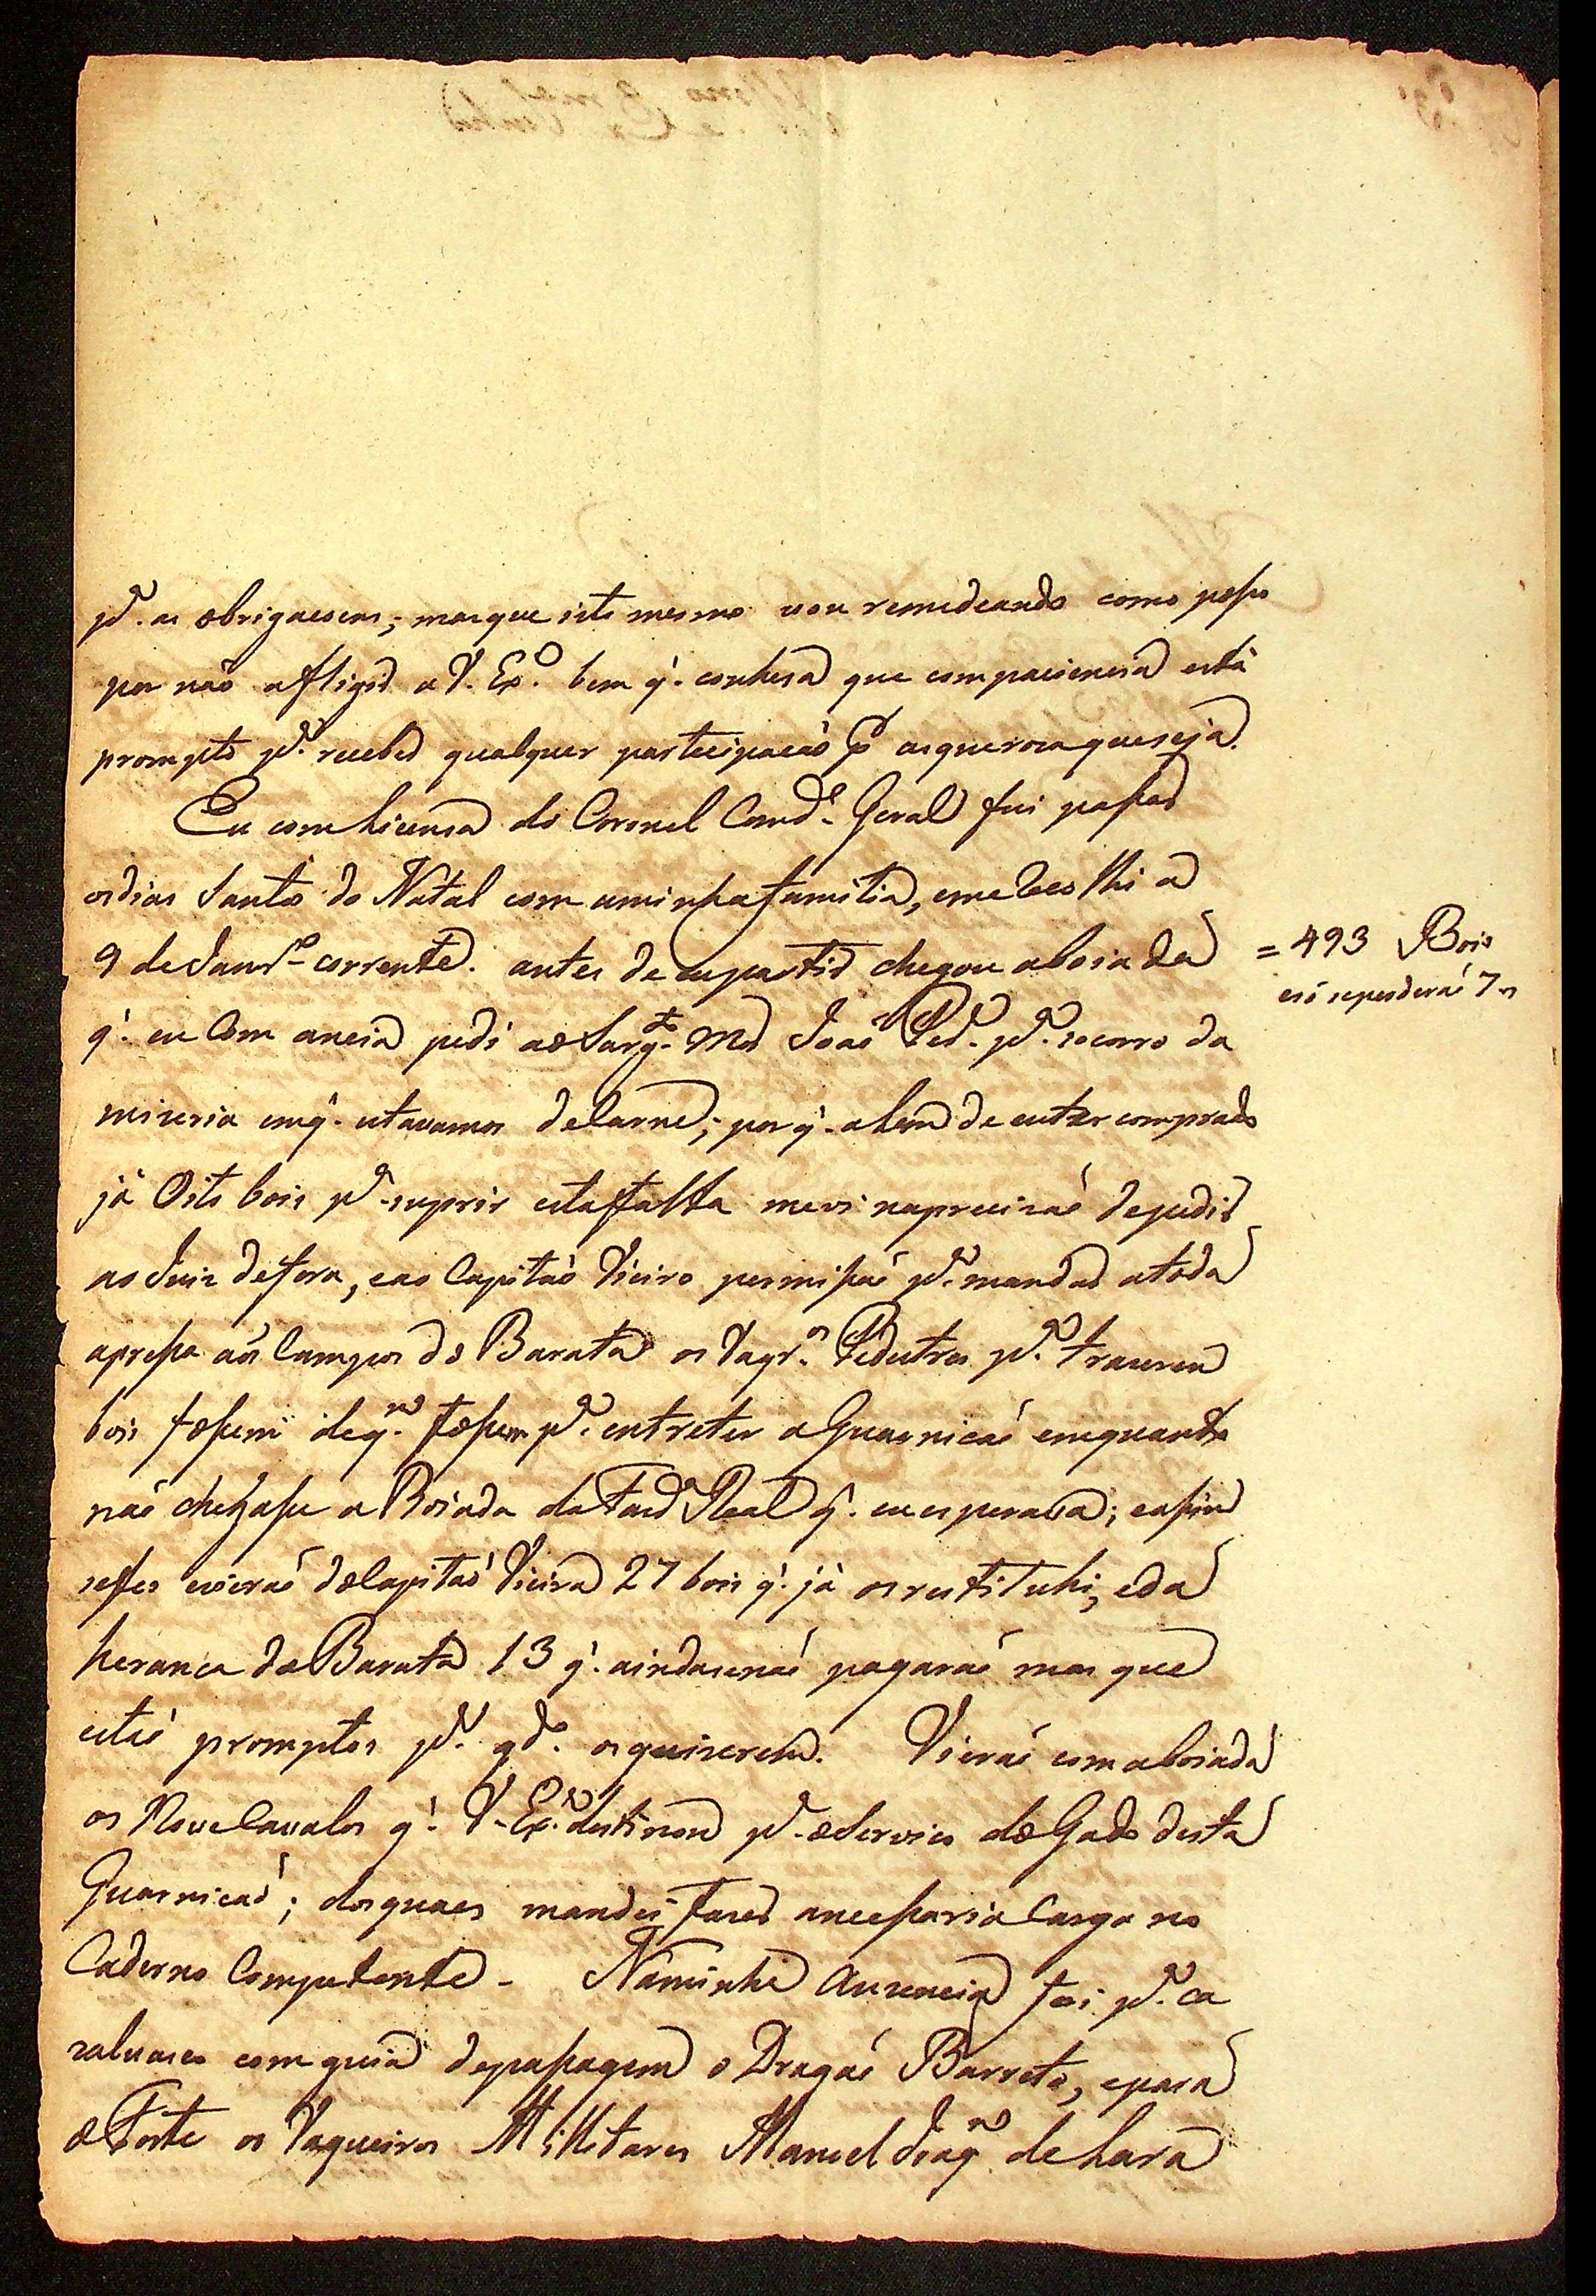 p.ª as obrigaesens; mas que isto mesmo vou remideando como posso
por não afligir a V. Ex.ª bem q̃. conhesa que com paciencia está
prompto p.ª receber qualquer partecipacaõ p.r asquerosa que seja.
Eu com licensa do Coronel Comd.e Geral fui passar
os dias Santos do Natal com a minha familia, e me recolhi a
9 de Janr.º corrente. antes de eu partir chegou a boiada
q̃. eu Com ancia pedi ao Sarg.to Mor Joaõ Ped. p.ª socorro da
= 493 Bois
e só se perderaõ 7 =
miseria em q̃. estavamos de Carne; por q̃. alem de eu ter comprado
já Oito bois p.ª suprir esta falta me vi na precisaõ de pedir
ao Juiz de fora, e ao Capitaõ Vieira permissaõ p.ª mandar a toda
a pressa aos Campos do Barata os Vaqr.os Pedestres p.ª traserem
bois fossem de q.m fossem p.ª entreter a Guarnicaõ emquanto
naõ chegasse a Boiada da Fazd Real q̃. eu esperava; e assim
se fes e vieraõ do Capitaõ Vieira 27 bois q̃. já os restituhi, e da
heranca do Barata 13 q̃. ainda se naõ pagaraõ mas que
estaõ promptos p.ª qd.º os quiserem. Vieraõ com a boiada
os Nove Cavalos q̃. V. Ex.ª destinou p.ª o Servico do Gado desta
Guarnicaõ; dos quaes mandei faser a necessaria Carga no
Caderno Competente - Na minha Ausencia foi p.ª Ca
salvasco com guia de passagem o Dragaõ Barreto, e para
o Forte os Vaqueiros Millitares Manoel Joaq.m de Lara